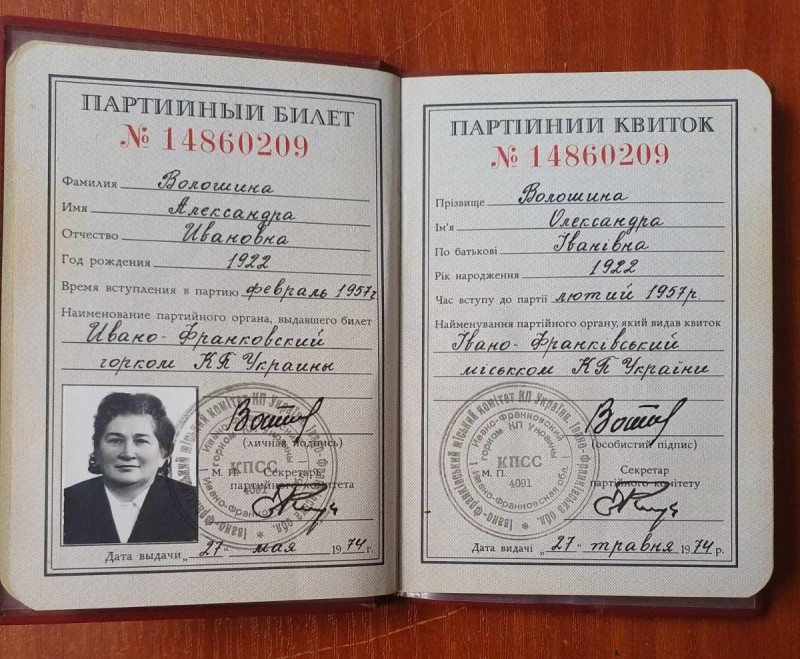 ПАРТИЙНЫЙ БИЛЕТ
№ 14860209
Фамилия Волошина
Имя Александра
Отчество Ивановна
Год рождения 1922
Время вступления в партию февраль 1957г
Наименование партийного органа, выдавшего билет
Ивано-Франковский
горком КП Украины
(личная подпись)
М. П. Секретарь
партийного комитета
КПСС
4091
Дата выдачи „27" мая 1974 г.
ПАРТІЙНИЙ КВИТОК
№ 14860209
Прізвище Волошина
Ім'я Олександра
По батькові Іванівна
Рік народження 1922
Час вступу до партії лютий 1957р.
Найменування партійного органу, який видав квиток
Івано-Франківський
міськком КП України
(особистий підпис)
М. П. Секретар
партійного комітету
Івано-Франківський міський комітет КП України. Івано-Франківська обл.
Ивано-Франковский горком КП Украины
Ивано-Франковская обл.
КПСС
4091
Дата видачі „27" травня 1974 р.